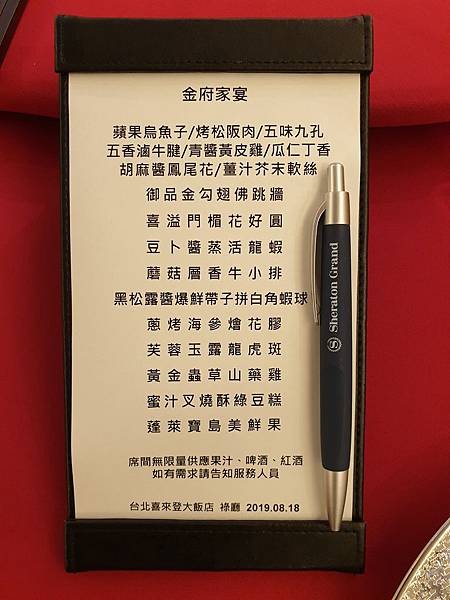 金府家宴
蘋果烏魚子/烤松阪肉/五味九孔
五香滷牛腱/青醬黃皮雞/瓜仁丁香
胡麻醬鳳尾花/薑汁芥末軟絲
御品金勾翅佛跳牆
喜溢門楣花好圓
豆卜醬蒸活龍蝦
蘑菇層香牛小排
黑松露醬爆鮮帶子拼白角蝦球
蔥烤海參燴花膠
芙蓉玉露龍虎斑
黃金蟲草山藥雞
蜜汁叉燒酥綠豆糕
蓬萊寶島美鮮果
席間無限量供應果汁、啤酒、紅酒
如有需求請告知服務人員
台北喜來登大飯店 祿廳 2019.08.18
S Sheraton Grand